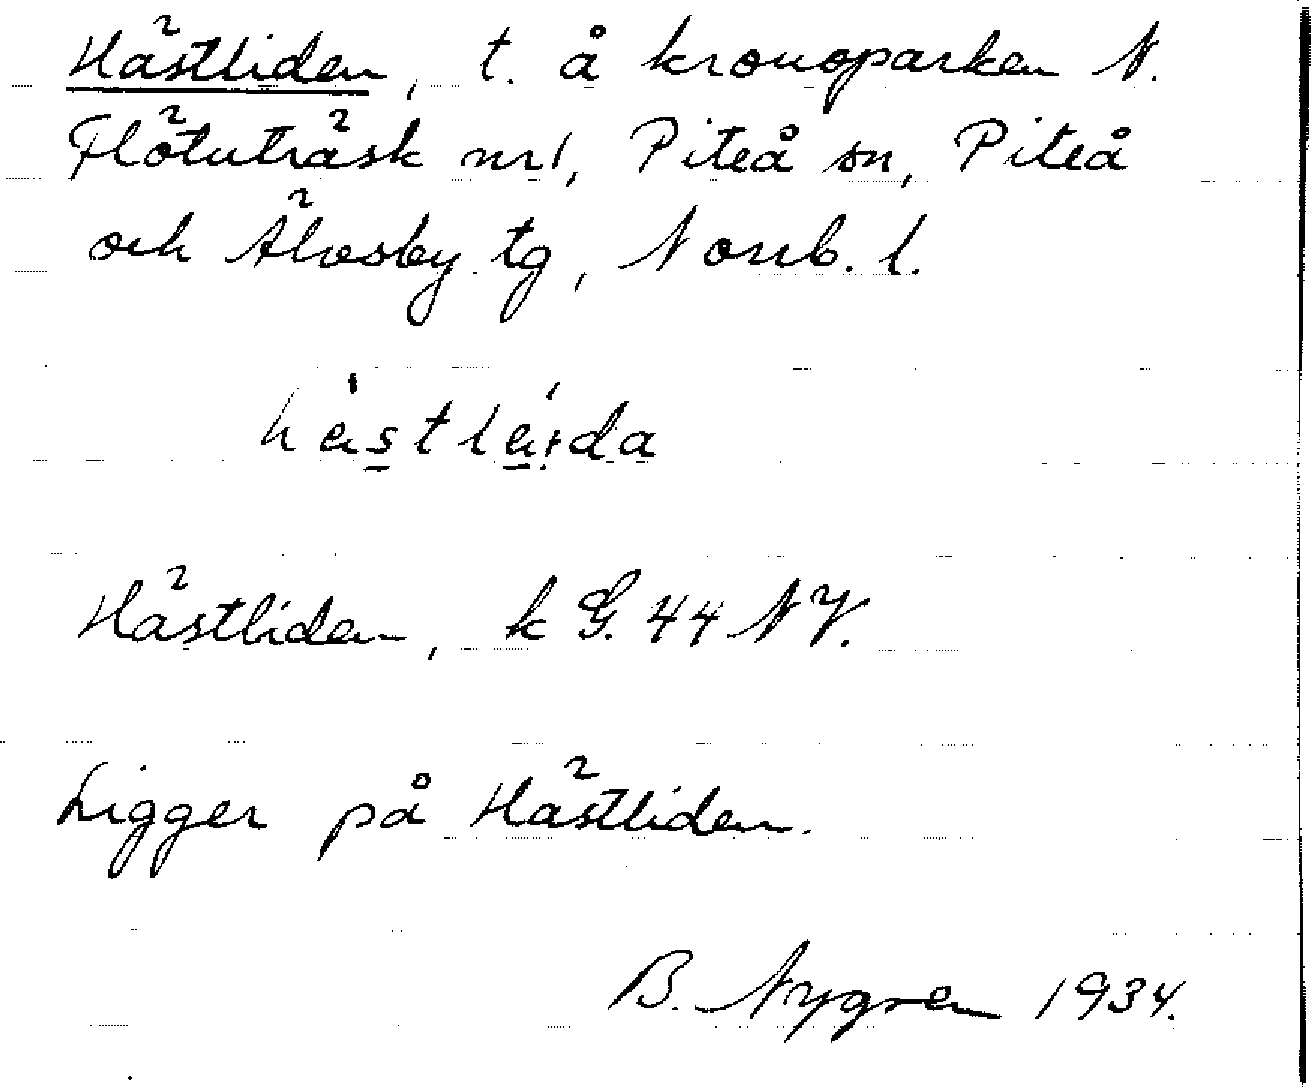 Hästliden, t. å kronoparken N.
Flötuträsk nr 1, Piteå sn, Piteå
och Älvsby tg, Norrb. l.
Hästliden, k G. 44 NV.
Ligger på Hästliden.
B. Nygren 1934.